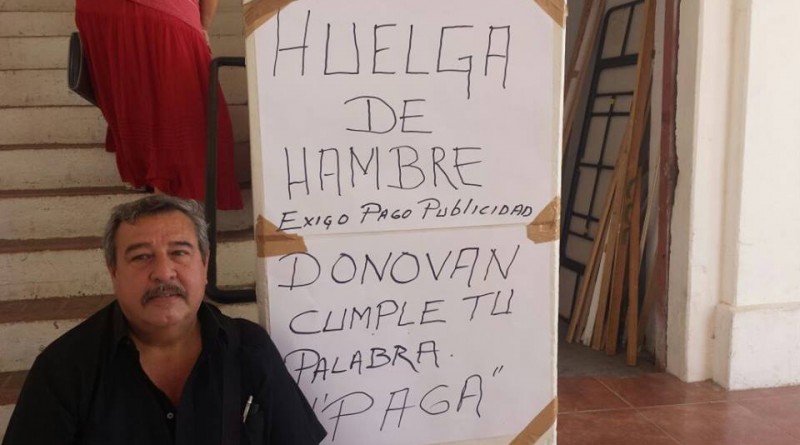 HUELGA
DE
HAMBRE
EXIGO PAGO PUBLICIDAD
DONOVAN
CUMPLE TU
PALABRA.
"PAGA"